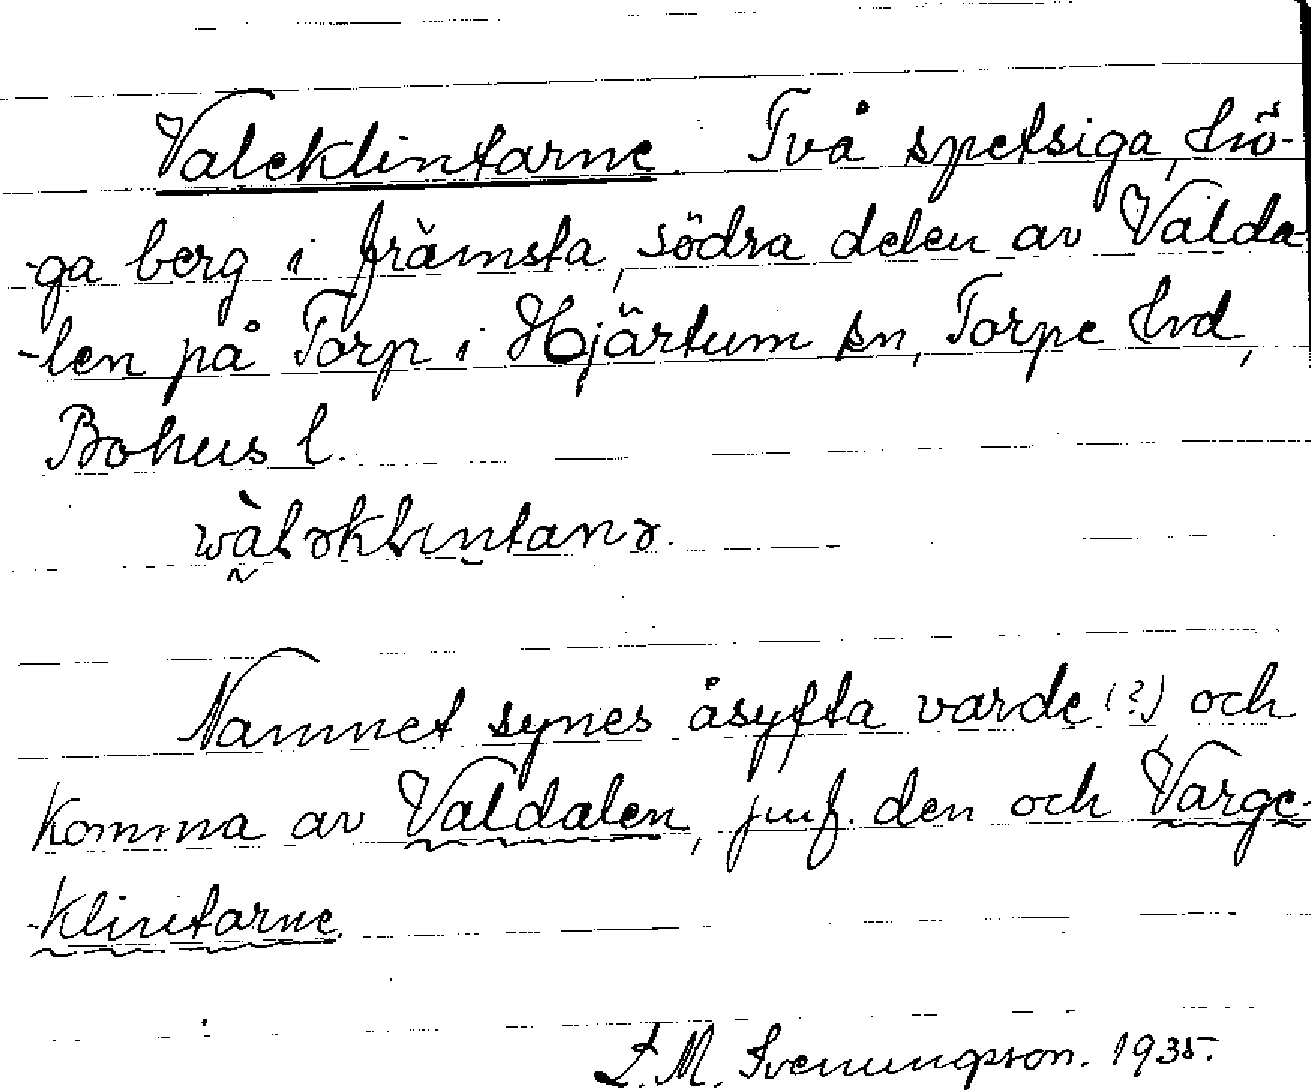 Valeklintarne Två spetsiga, hö-
-ga berg i främsta, södra delen av Valda-
-len på Torp i Hjärtum sn, Torpe hd,
Bohus l.
Namnet synes åsyfta varde (?), och
komma av Valdalen, jmf. den och Varge-
-klintarne.
L. M. Svenungsson. 1935.